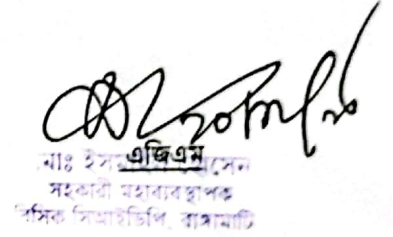 এজিএম
মোঃ ইসমাইল হোসেন
সহকারী মহাব্যবস্থাপক
বিসিক সিআইডিপি, রাঙ্গামাটি